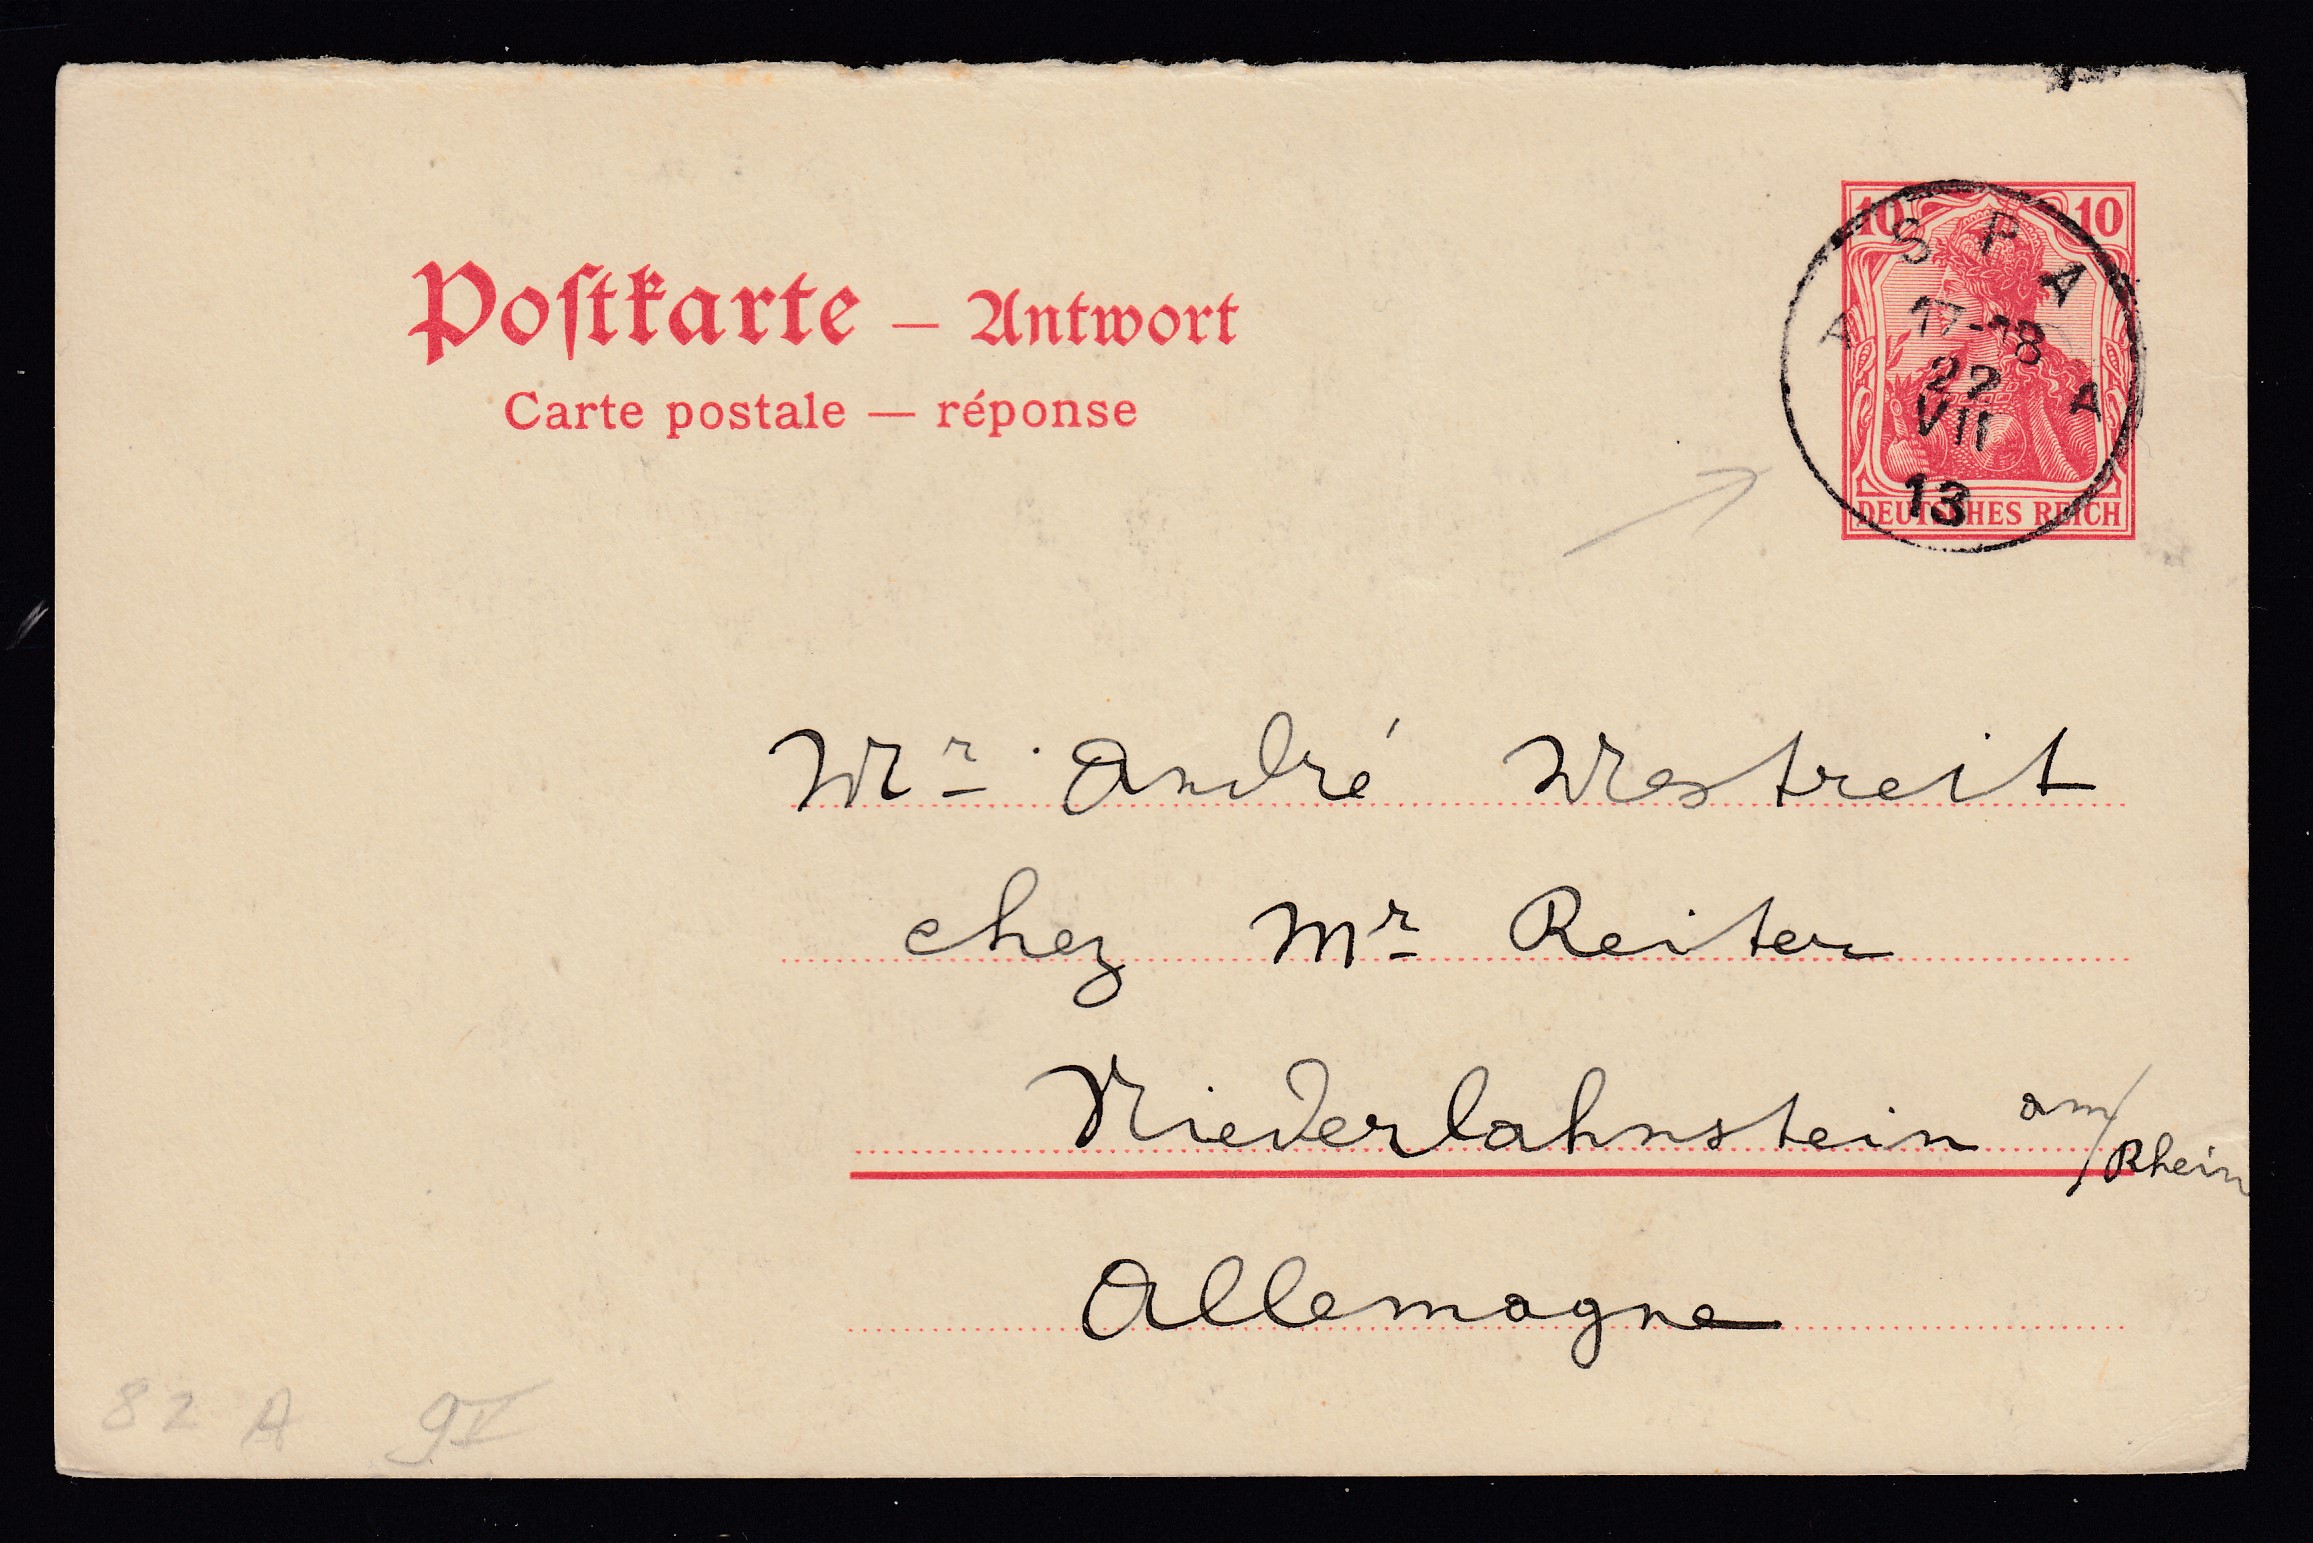 Postkarte – Antwort
Carte postale — réponse
10 10
DEUTSCHES REICH
SPA
A A
17-18
22
VII
13
Mr. André Westreit
chez Mr Reiter
Niederlahnstein am/Rhein
Allemagne
82 A